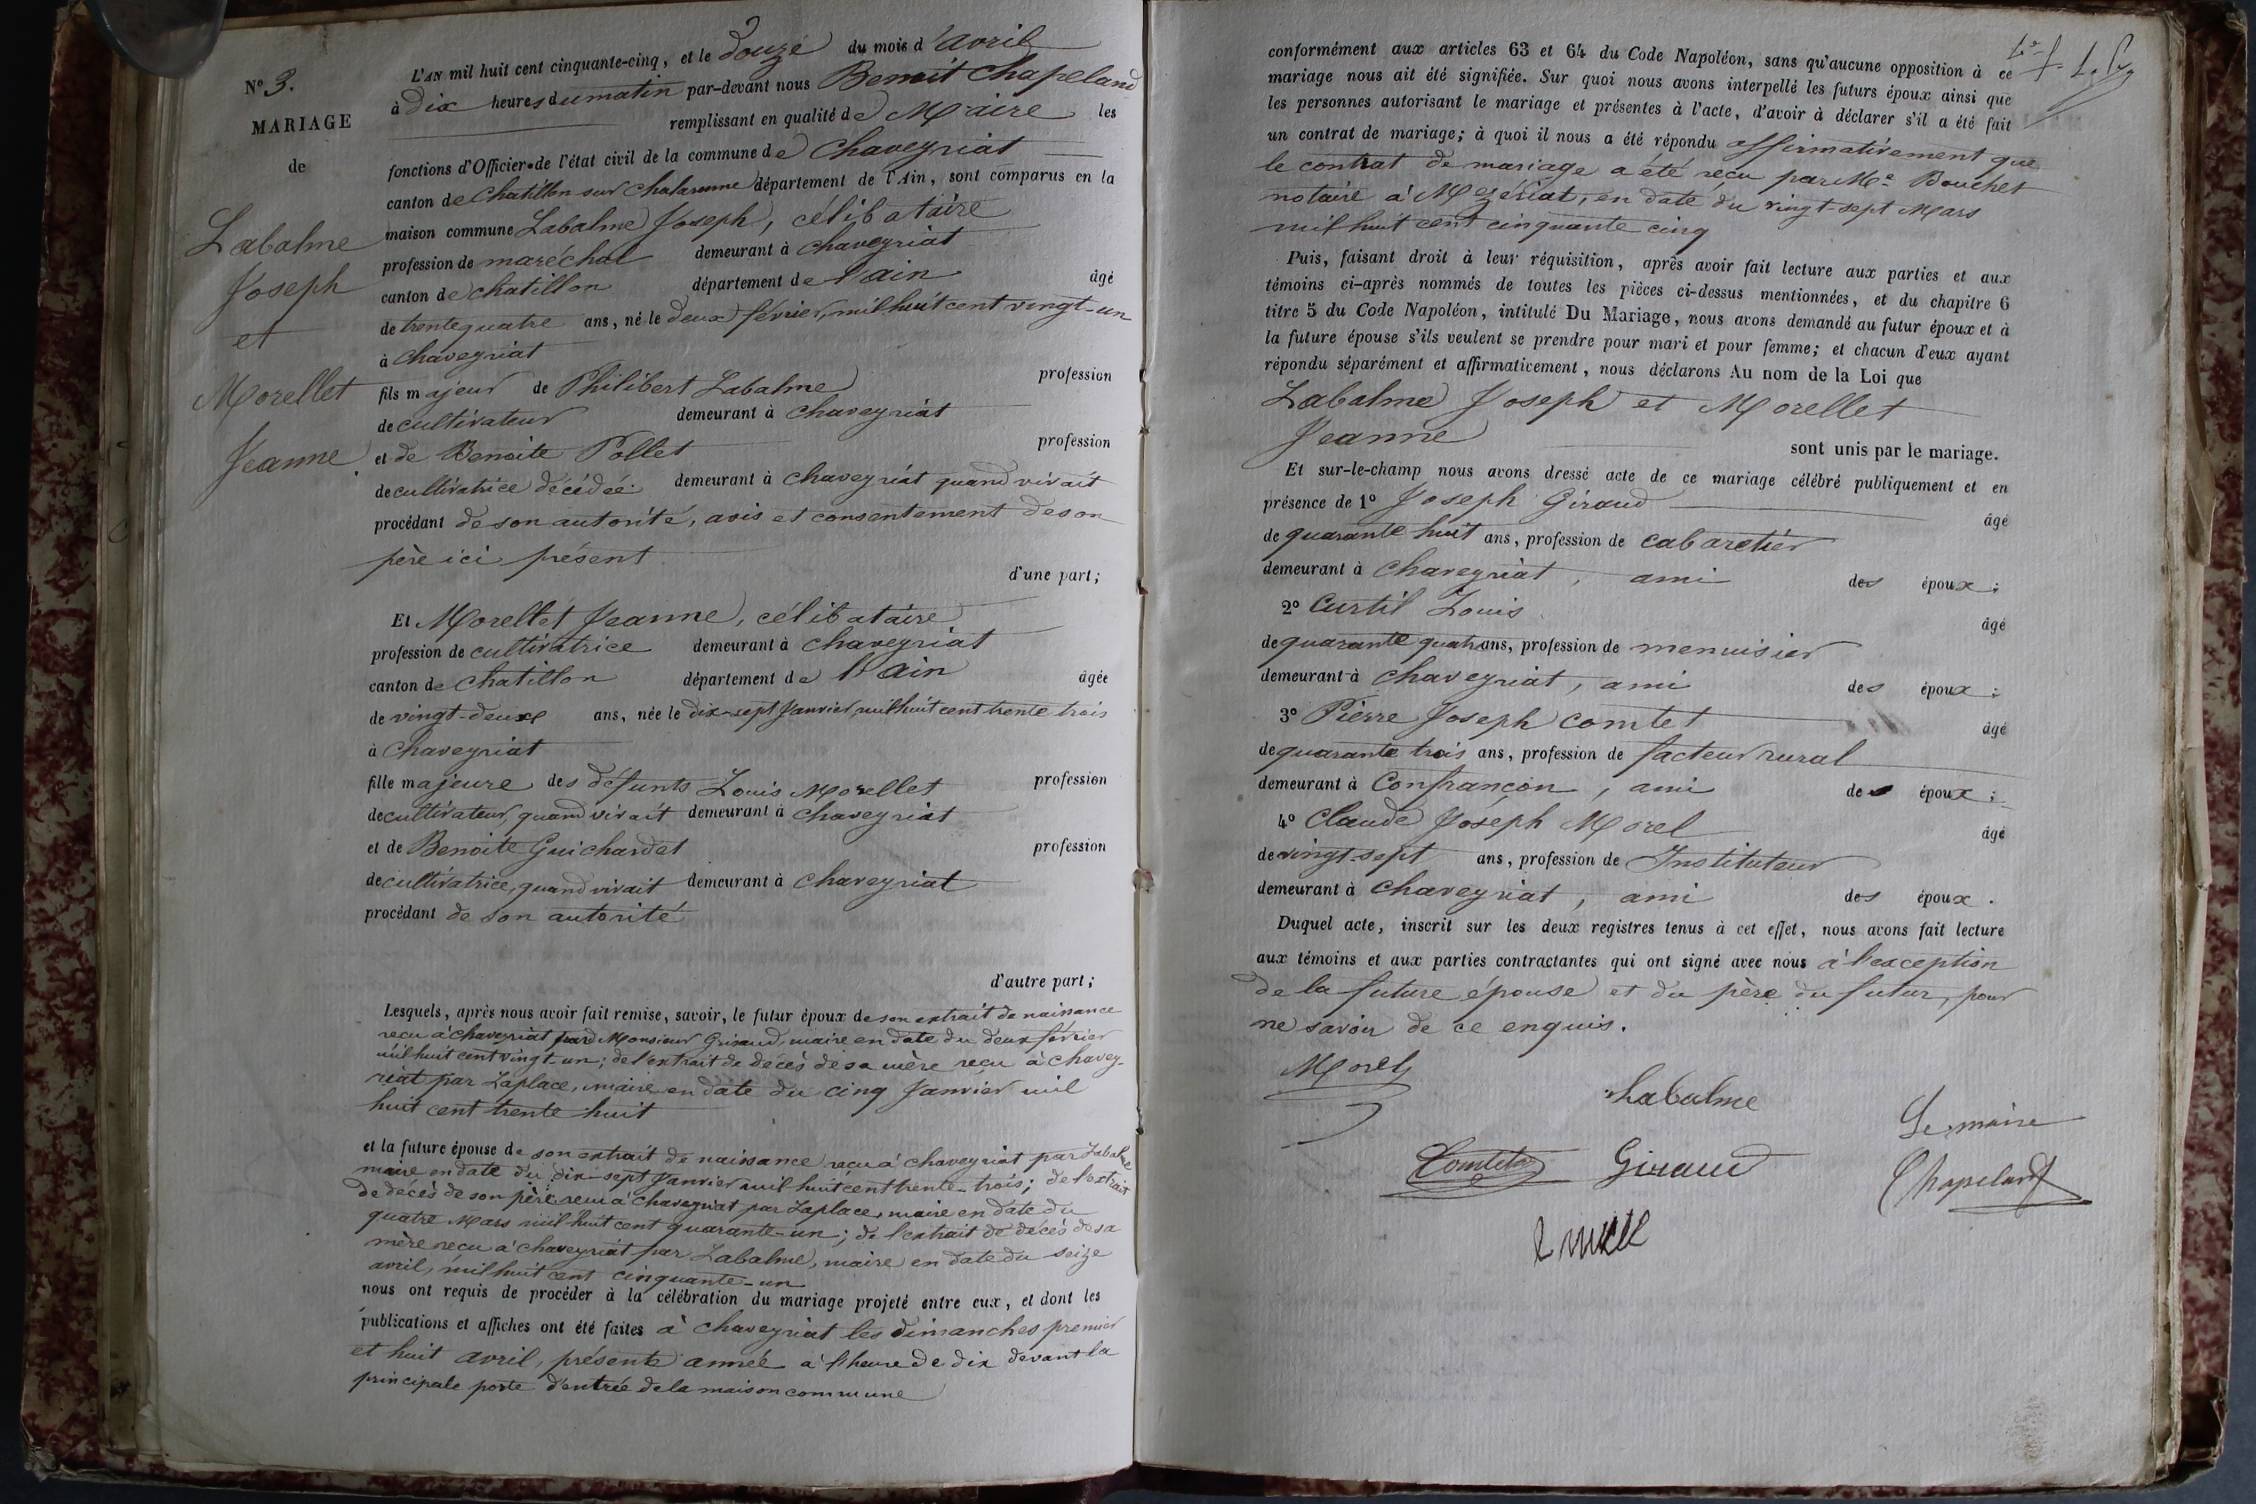 N° 3.
MARIAGE
de
Labalme
Joseph
et
Morellet
Jeanne
L'AN mil huit cent cinquante-cinq, et le douze du mois d'avril
à Dix heures du matin par-devant nous Benoit Chapeland
remplissant en qualité de Maire les
fonctions d'Officier de l'état civil de la commune de Chaveyriat
canton de Chatillon sur Chalaronne département de l'Ain, sont comparus en la
maison commune Labalme Joseph, célibataire
profession de maréchal demeurant à Chaveyriat
canton de chatillon département de l'ain âgé
de trente quatre ans, né le deux février, mil huit cent vingt-un
à Chaveyriat
fils majeur de Philibert Labalme profession
de cultivateur demeurant à chaveyriat
et de Benoite Pollet profession
de cultivatrice décédée demeurant à chaveyriat quand vivait
procédant de son autorité, avis et consentement de son
père ici présent
d'une part;
Et Morellet Jeanne, célibataire
profession de cultivatrice demeurant à chaveyriat
canton de Chatillon département de l'ain âgée
de vingt-deux ans, née le dix-sept Janvier, mil huit cent trente trois
à Chaveyriat
fille majeure des défunts Louis Morellet profession
de cultivateur, quand vivait demeurant à Chaveyriat
et de Benoite Guichardet profession
de cultivatrice, quand vivait demeurant à Chaveyriat
procédant de son autorité
d'autre part;
Lesquels, après nous avoir fait remise, savoir, le futur époux de son extrait de naissance
recu à Chaveyriat par Monsieur Giraud, maire en date du deux février
mil huit cent vingt-un; de l'extrait de décès de sa mère reçu à chavey-
riat par Laplace, maire en date du cinq Janvier mil
huit cent trente huit
et la future épouse de son extrait de naissance recu à chaveyriat par Labalme
maire en date du dix-sept Janvier mil huit cent trente-trois; de l'extrait
de décès de son père recu à chaveyriat par Laplace, maire en date du
quatre Mars mil huit cent quarante-un; de l'extrait de décès de sa
mère recu à chaveyriat par Labalme, maire en date du seize
avril, mil huit cent cinquante-un
nous ont requis de procéder à la célébration du mariage projeté entre eux, et dont les
publications et affiches ont été faites à chaveyriat les dimanches premier
et huit avril, présente année à l'heure de dix devant la
principale porte d'entrée de la maison commune
conformément aux articles 63 et 64 du Code Napoléon, sans qu'aucune opposition à ce
mariage nous ait été signifiée. Sur quoi nous avons interpellé les futurs époux ainsi que
les personnes autorisant le mariage et présentes à l'acte, d'avoir à déclarer s'il a été fait
un contrat de mariage; à quoi il nous a été répondu affirmativement que
le contrat de mariage a été reçu par Me Bouchet
notaire à Mezériat, en date du vingt-sept Mars
mil huit cent cinquante cinq
Puis, faisant droit à leur réquisition, après avoir fait lecture aux parties et aux
témoins ci-après nommés de toutes les pièces ci-dessus mentionnées, et du chapitre 6
titre 5 du Code Napoléon, intitulé Du Mariage, nous avons demandé au futur époux et à
la future épouse s'ils veulent se prendre pour mari et pour femme; et chacun d'eux ayant
répondu séparément et affirmativement, nous déclarons Au nom de la Loi que
Labalme Joseph et Morellet
Jeanne sont unis par le mariage.
Et sur-le-champ nous avons dressé acte de ce mariage célébré publiquement et en
présence de 1° Joseph Giraud âgé
de quarante huit ans, profession de cabaretier
demeurant à Chaveyriat, ami des époux;
2° Curtil Louis âgé
de quarante quatre ans, profession de menuisier
demeurant à Chaveyriat, ami des époux;
3° Pierre Joseph comtet âgé
de quarante trois ans, profession de facteur rural
demeurant à Confrançon, ami des époux;
4° Claude Joseph Morel âgé
de vingt-sept ans, profession de Instituteur
demeurant à Chaveyriat, ami des époux.
Duquel acte, inscrit sur les deux registres tenus à cet effet, nous avons fait lecture
aux témoins et aux parties contractantes qui ont signé avec nous à l'exception
de la future épouse et du père du futur, pour
ne savoir de ce enquis.
Morel
Labalme
Le maire
Comtet
Giraud
Chapeland